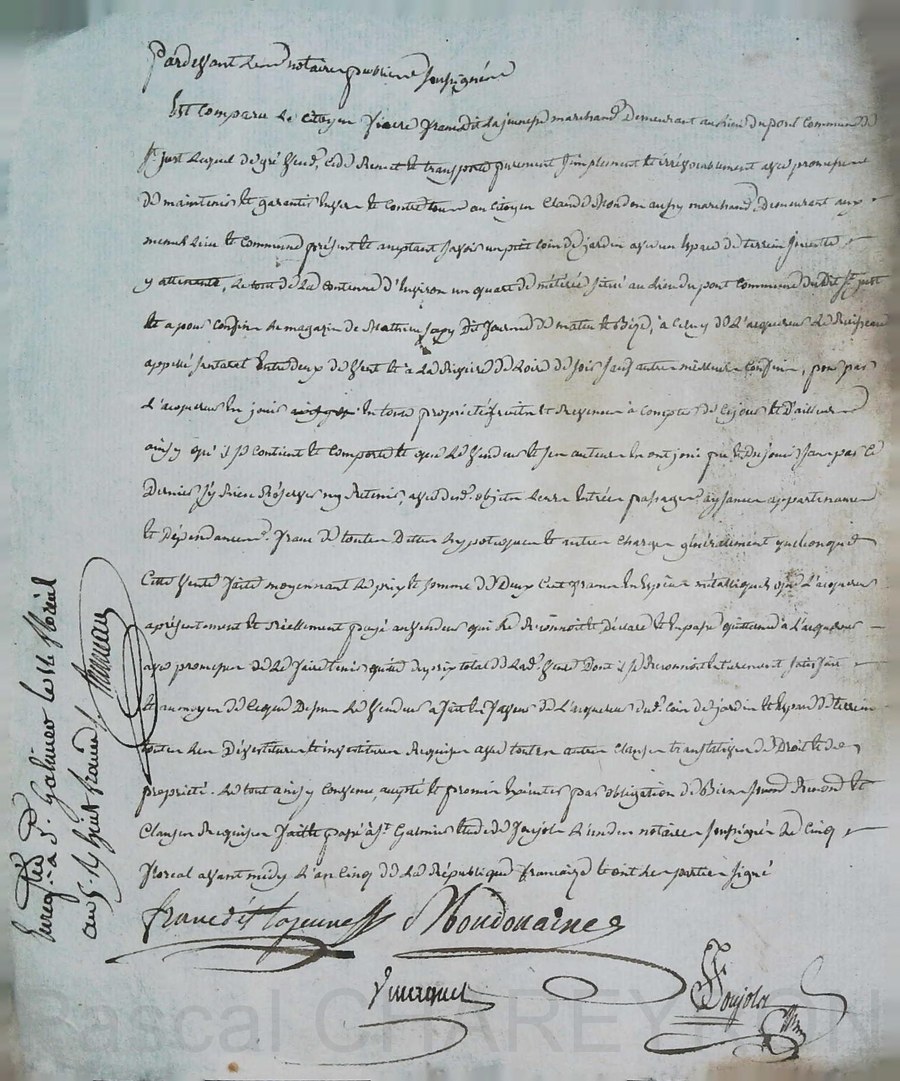 Pardevant les notaires publics soussignés
Est comparu le citoyen franc dit la jeunesse marchand demeurant au lieu du pont commune de
St just lequel de gré vend, cede remet et transporte purement simplement et irrévocablement avec promesse
de maintenir et garantir envers et contre tous au citoyen Claude aussy marchand demeurant aux
mesme lieu et commune présent et acceptant savoir un petit coin de jardin avec un espace de terrein
y attenante, le tout de la contenue d'environ un quart de métérée situé au lieu du pont commune dudit St just
Et a pour confins le magazin de Mathieu dit de matin et bize, à celuy de l'acquereur le Ruisseau
appellé entre deux de vent et à la Rivière de Loire de soir sauf autres meilleurs confins, pour par
l'acquereur en jouir en toute propriété fruits et Revenus à compter de ce jour et d'ailleurs
ainsy qu'il se contient et comporte et que le vendeur et ses auteurs en ont joui pu et du jouir sans par ce
Dernier s'y rien Réserver ny Retenir, avec dud. objets leurs entrées passages aysances appartenances
et dépendances. franc de toutes dettes hypotheques et autres charges généralement quelconques
Cette vente faite moyennant le prix et somme de deux cent francs en espèces métalliques que l'acquereur
a présentement et réellement payé au vendeur qui le reconnoit et déclare et en passe quittance à l'acquereur
avec promesse de le faire tenir quitte du prix total de lad. vente dont il se reconnoit entierement satisfait
Et au moyen de ce que dessus le vendeur a fait en faveur de l'acquereur dud. coin de jardin et espace de terrein
toutes les Dévestitures et investitures Requises avec toutes autres clauses translatives de Droit et de
propriété. le tout ainsy convenu, accepté et promis par obligation de Biens Renond et
Clauses Requises fait et passé à St Galmier étude de Soujols l'un des notaires soussignés le cinq
floreal avant midy l'an cinq de la République française et ont les parties signé
franc dit Lajeunesse
Soujols
Enregtré à St Galmier le 14 floréal
an 5. Rçu huit francs
Pascal CHAREYRON